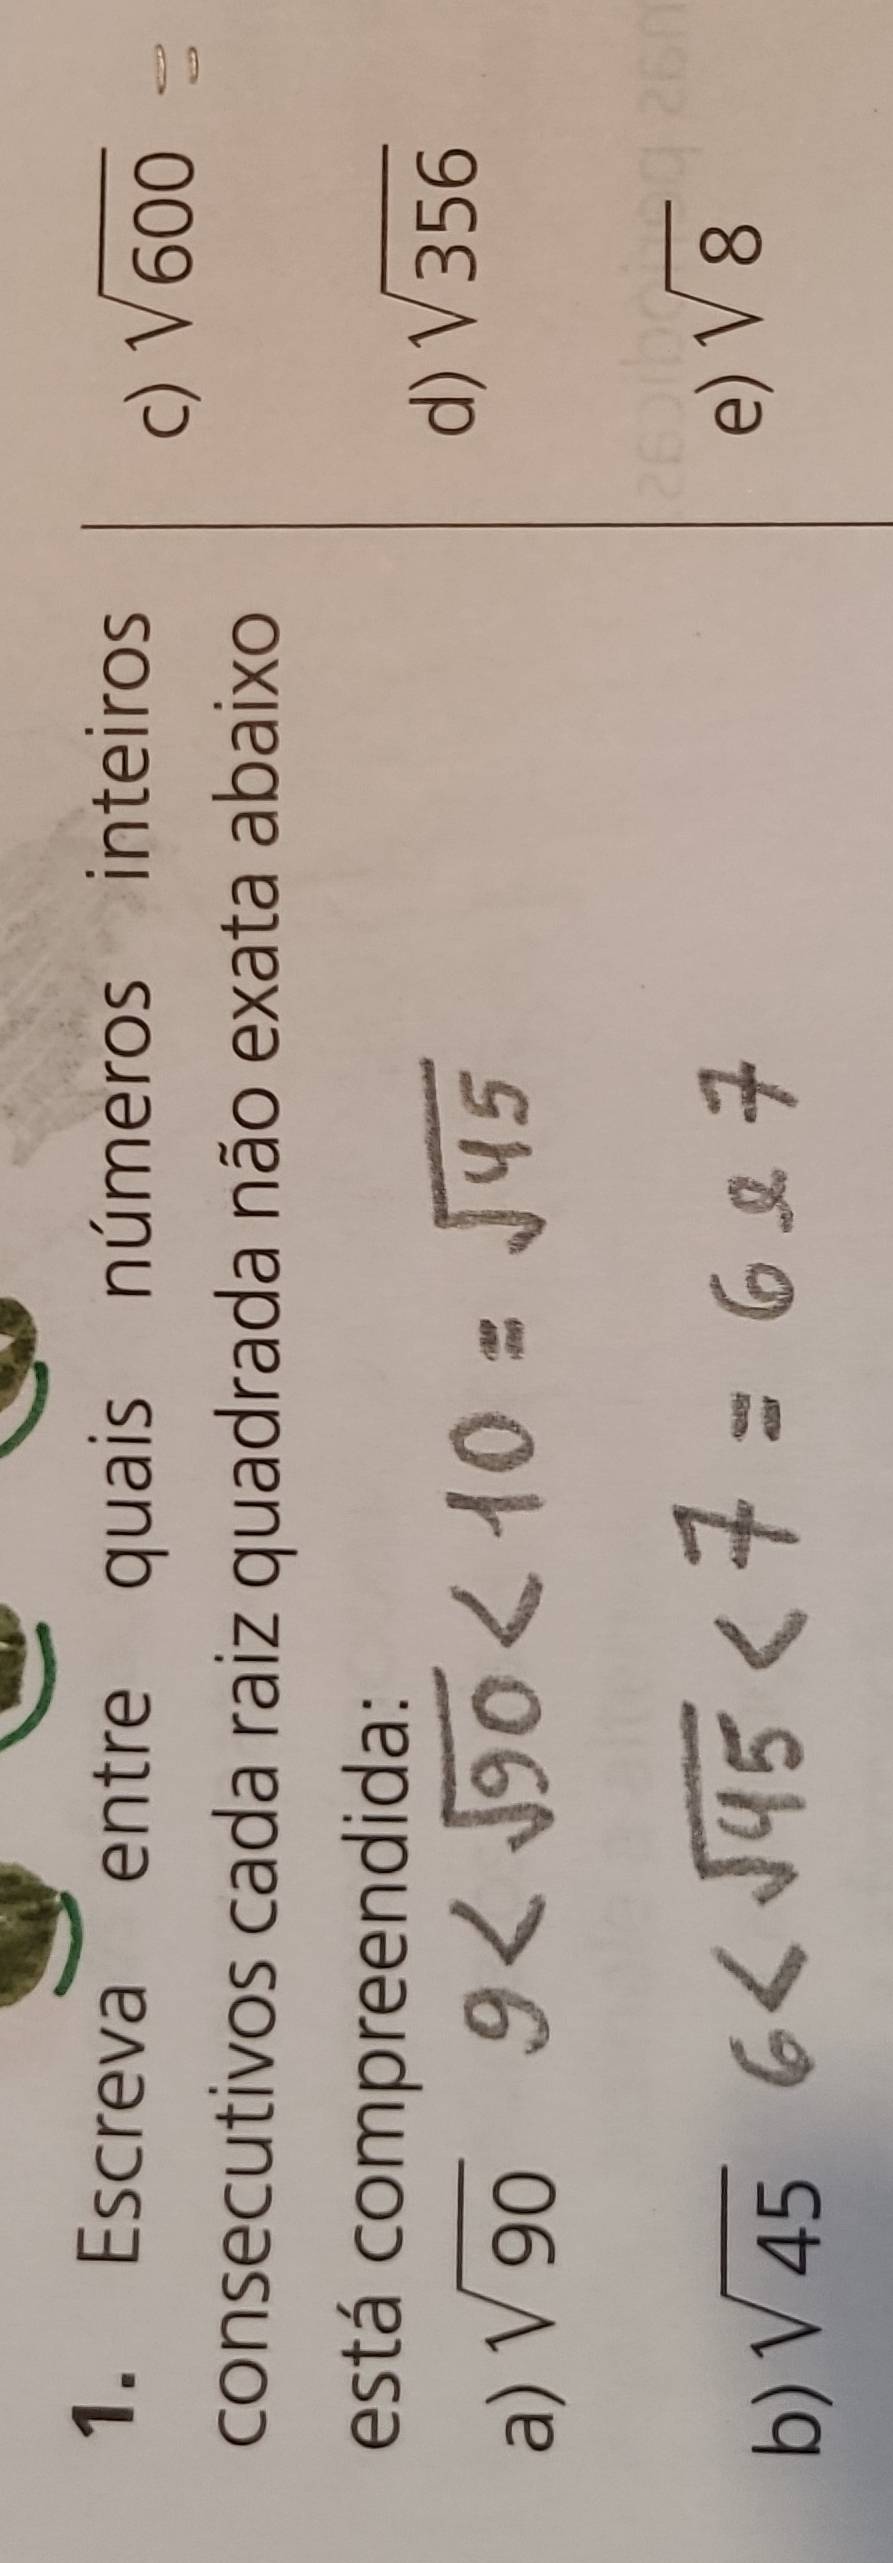 1. Escreva entre quais números inteiros
consecutivos cada raiz quadrada não exata abaixo
está compreendida:
a) √90 9<√90<10 = √45
b) √45 6<√45<7 = 6 e 7
c) √600 =
d) √356
e) √8